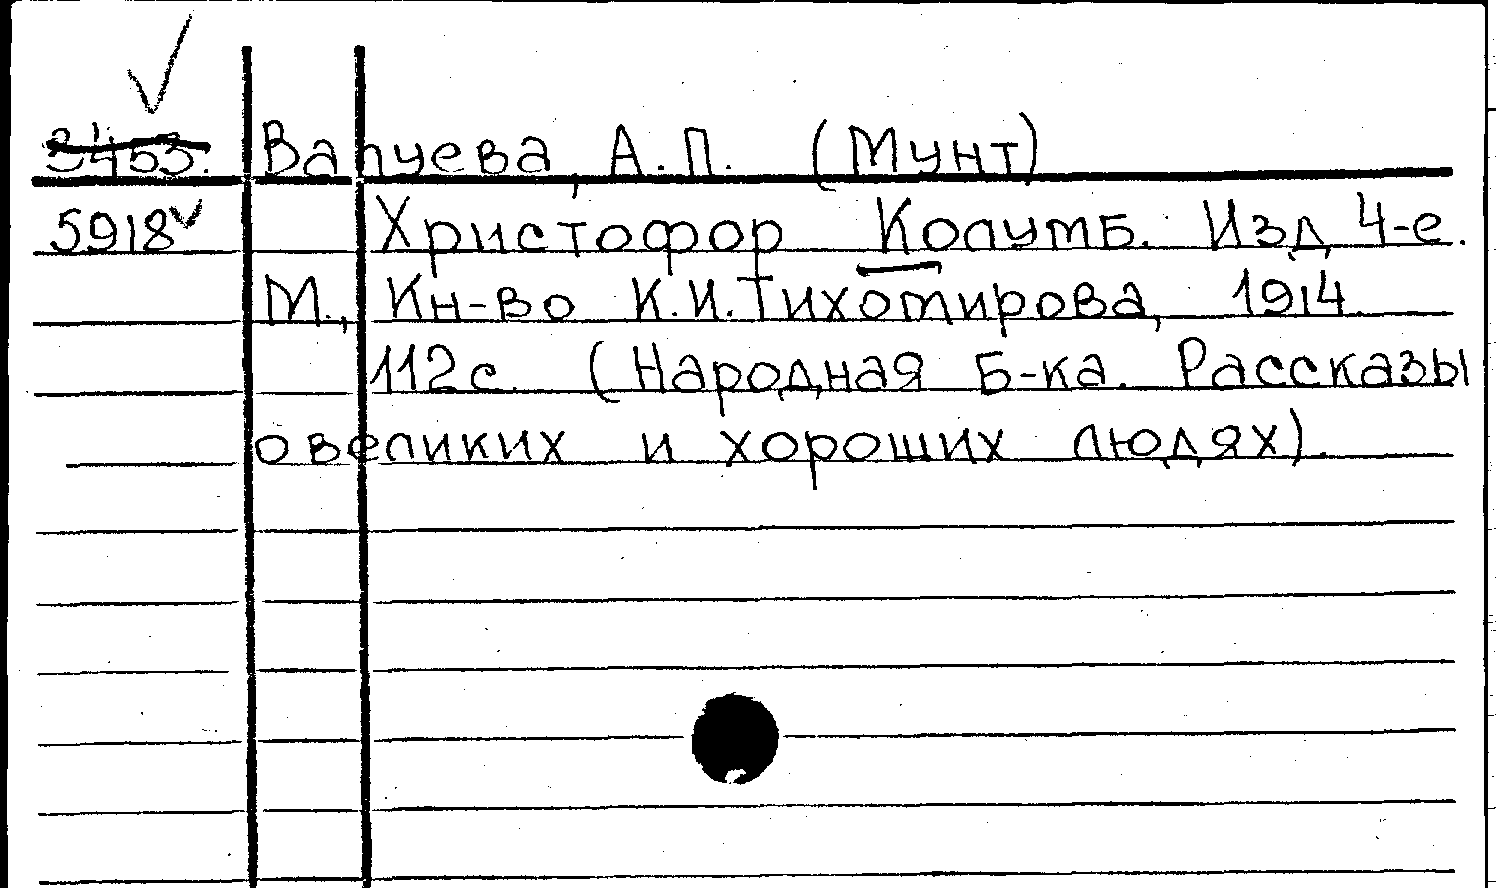 3453. Валуева, А.П. (Мунт)
5918 Христофор Колумб. Изд 4-е.
М., Кн-во К.И.Тихомирова, 1914.
112с. (Народная Б-ка. Рассказы
о великих и хороших людях).